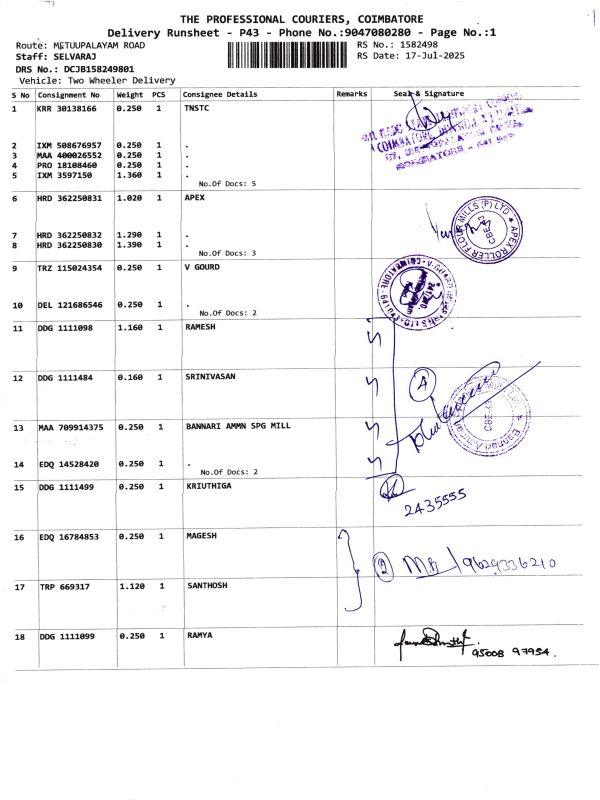 THE PROFESSIONAL COURIERS, COIMBATORE
Delivery Runsheet - P43 - Phone No.:9047080280 - Page No.:1
Route: METUUPALAYAM ROAD
RS No.: 1582498
Staff: SELVARAJ
RS Date: 17-Jul-2025
DRS No.: DCJB158249801
Vehicle: Two Wheeler Delivery
S No Consignment No Weight PCS Consignee Details Remarks Seal & Signature
1 KRR 30138166 0.250 1 TNSTC
2 IXM 508676957 0.250 1 .
3 MAA 400026552 0.250 1 .
4 PRO 18108460 0.250 1 .
5 IXM 3597150 1.360 1 .
No.Of Docs: 5
6 HRD 362250831 1.020 1 APEX
APEX ROLLER FLOUR MILLS (P) LTD
CBE-43
7 HRD 362250832 1.290 1 .
8 HRD 362250830 1.390 1 .
No.Of Docs: 3
9 TRZ 115024354 0.250 1 V GOURD
10 DEL 121686546 0.250 1 .
No.Of Docs: 2
11 DDG 1111098 1.160 1 RAMESH
12 DDG 1111484 0.160 1 SRINIVASAN
4
13 MAA 709914375 0.250 1 BANNARI AMMN SPG MILL
14 EDQ 14528420 0.250 1 .
No.Of Docs: 2
15 DDG 1111499 0.250 1 KRIUTHIGA
2435555
16 EDQ 16784853 0.250 1 MAGESH
2 9629336210
17 TRP 669317 1.120 1 SANTHOSH
18 DDG 1111099 0.250 1 RAMYA
95008 97954.